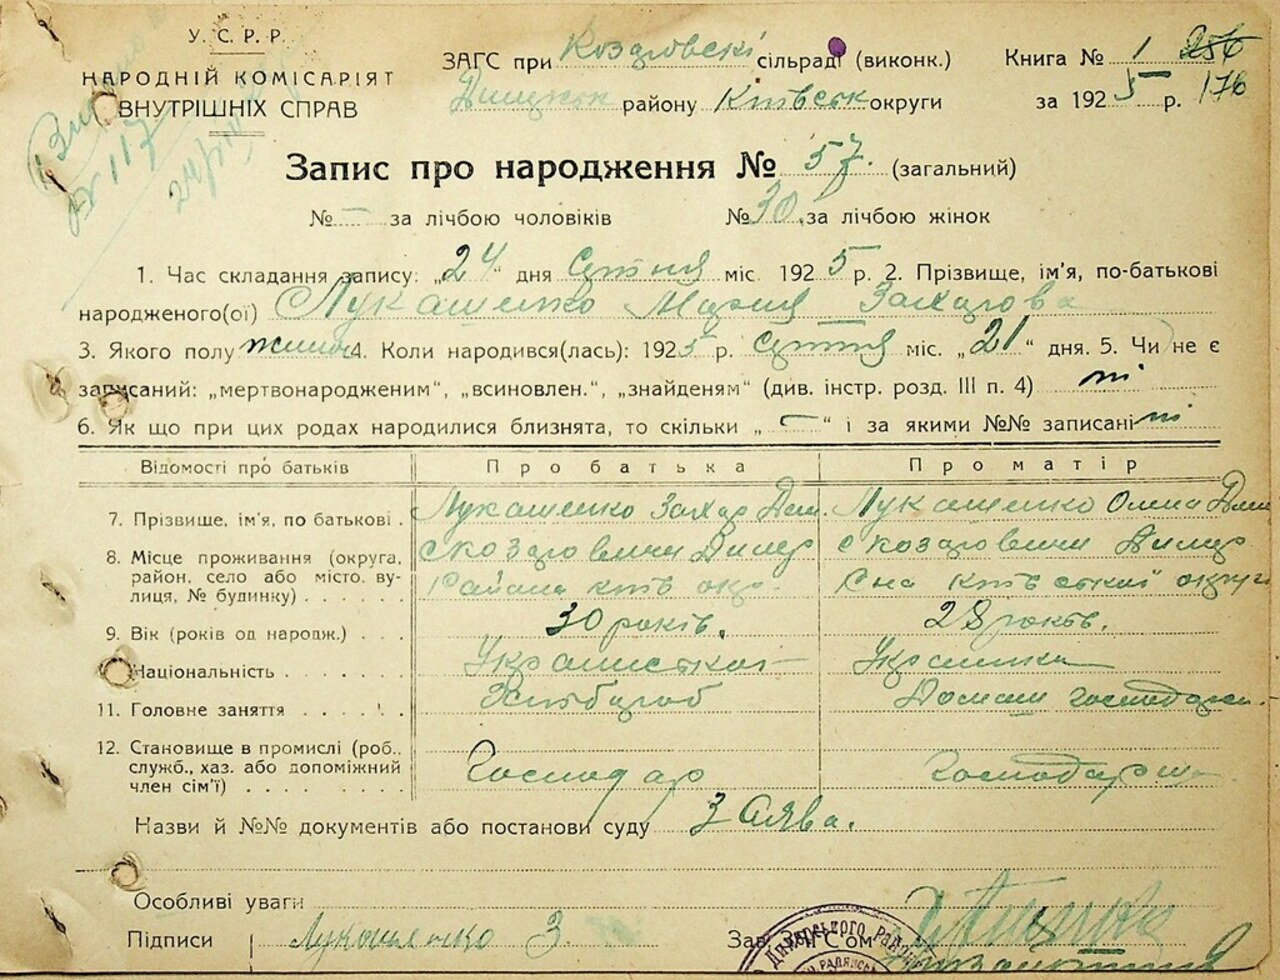 У. С. Р. Р.
НАРОДНІЙ КОМІСАРІЯТ
ВНУТРІШНІХ СПРАВ
ЗАГС при сільраді (виконк.)
району Київськ округи
Книга № 1 256
за 1925 р. 176
№ 117
Запис про народження № 57. (загальний)
№ — за лічбою чоловіків № 30. за лічбою жінок
1. Час складання запису: „24“ дня Січня міс. 1925 р. 2. Прізвище, ім'я, по-батькові
народженого(ої) Лукашенко Мария Захарова
3. Якого полу жіноч 4. Коли народився(лась): 1925 р. Січня міс. „21“ дня. 5. Чи не є
записаний: „мертвонародженим“, „всиновлен.“, „знайденям“ (див. інстр. розд. III п. 4) ні
6. Як що при цих родах народилися близнята, то скільки „—“ і за якими №№ записані ні
Відомості про батьків Про батька Про матір
7. Прізвище, ім'я, по батькові . Лукашенко Захар Дем. Лукашенко
8. Місце проживання (округа,
район, село або місто, ву-
лиця, № будинку) . . . . . . Района київ окр. Київської округи
9. Вік (років од народж.) . . . 30 років. 28 років.
Національність . . . . . . . Українка
11. Головне заняття . . . . . . Хлібороб Домаш господарк.
12. Становище в промислі (роб.,
служб., хаз. або допоміжний
член сім'ї) . . . . . . . . Господар Господарка
Назви й №№ документів або постанови суду З Аява.
Особливі уваги
Підписи З. Зав. ЗАГС'ом
Димерського район